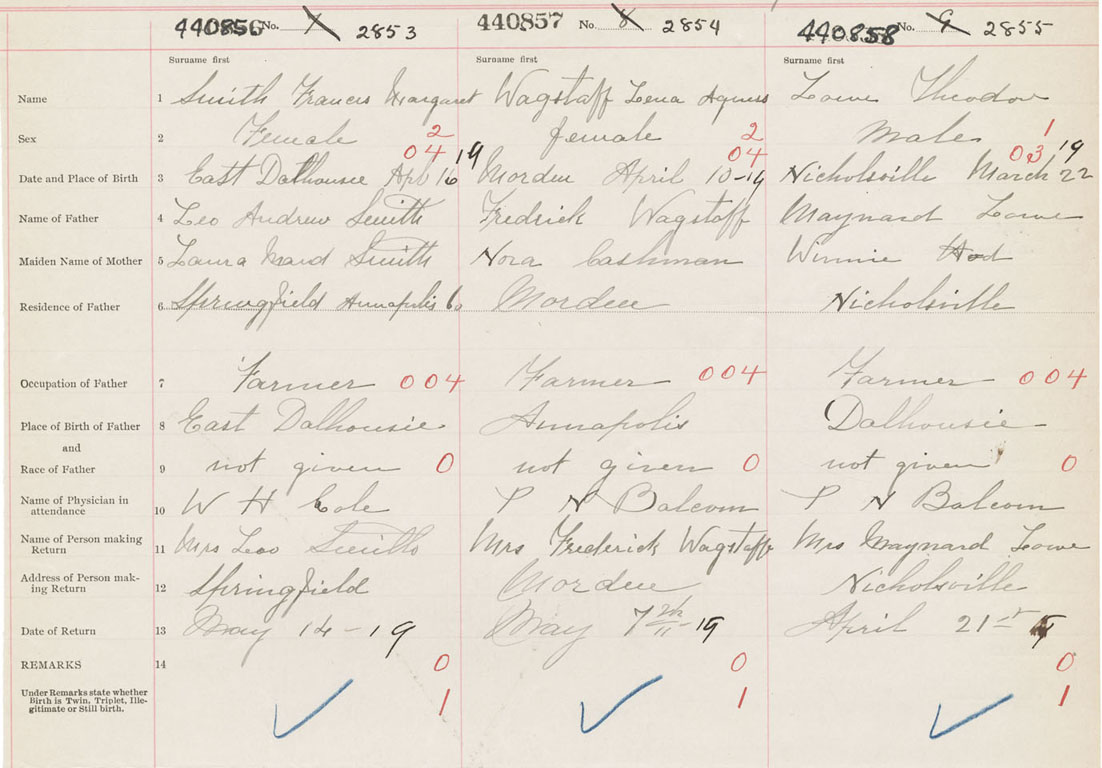 440856 No. 7 2853 440857 No. 8 2854 440858 No. 9 2855
Surname first Surname first Surname first
Name 1 Smith Francis Margaret Wagstaff Lena Agness Lowe Theodor
Sex 2 Female 2 female 2 Male 1
04 19 04 03 19
Date and Place of Birth 3 East Dalhousie Apl 16 Morden April 10-19 Nicholsville March 22
Name of Father 4 Leo Andrew Smith Fredrick Wagstaff Maynard Lowe
Maiden Name of Mother 5 Laura Maud Smith Nora Cashman Winnie
Residence of Father 6 Springfield Annapolis Co Morden Nicholsville
Occupation of Father 7 Farmer 004 Farmer 004 Farmer 004
Place of Birth of Father 8 East Dalhousie Annapolis Dalhousie
and
Race of Father 9 not given 0 not given 0 not given 0
Name of Physician in
attendance 10 W H Cole P N Balcom P N Balcom
Name of Person making
Return 11 Mrs Leo Smith Mrs Frederick Wagstaff Mrs Maynard Lowe
Address of Person mak-
ing Return 12 Springfield Morden Nicholsville
Date of Return 13 May 14-19 May 7th 19 April 21st
REMARKS 14 0 0 0
Under Remarks state whether
Birth is Twin, Triplet, Ille-
gitimate or Still birth. 1 1 1